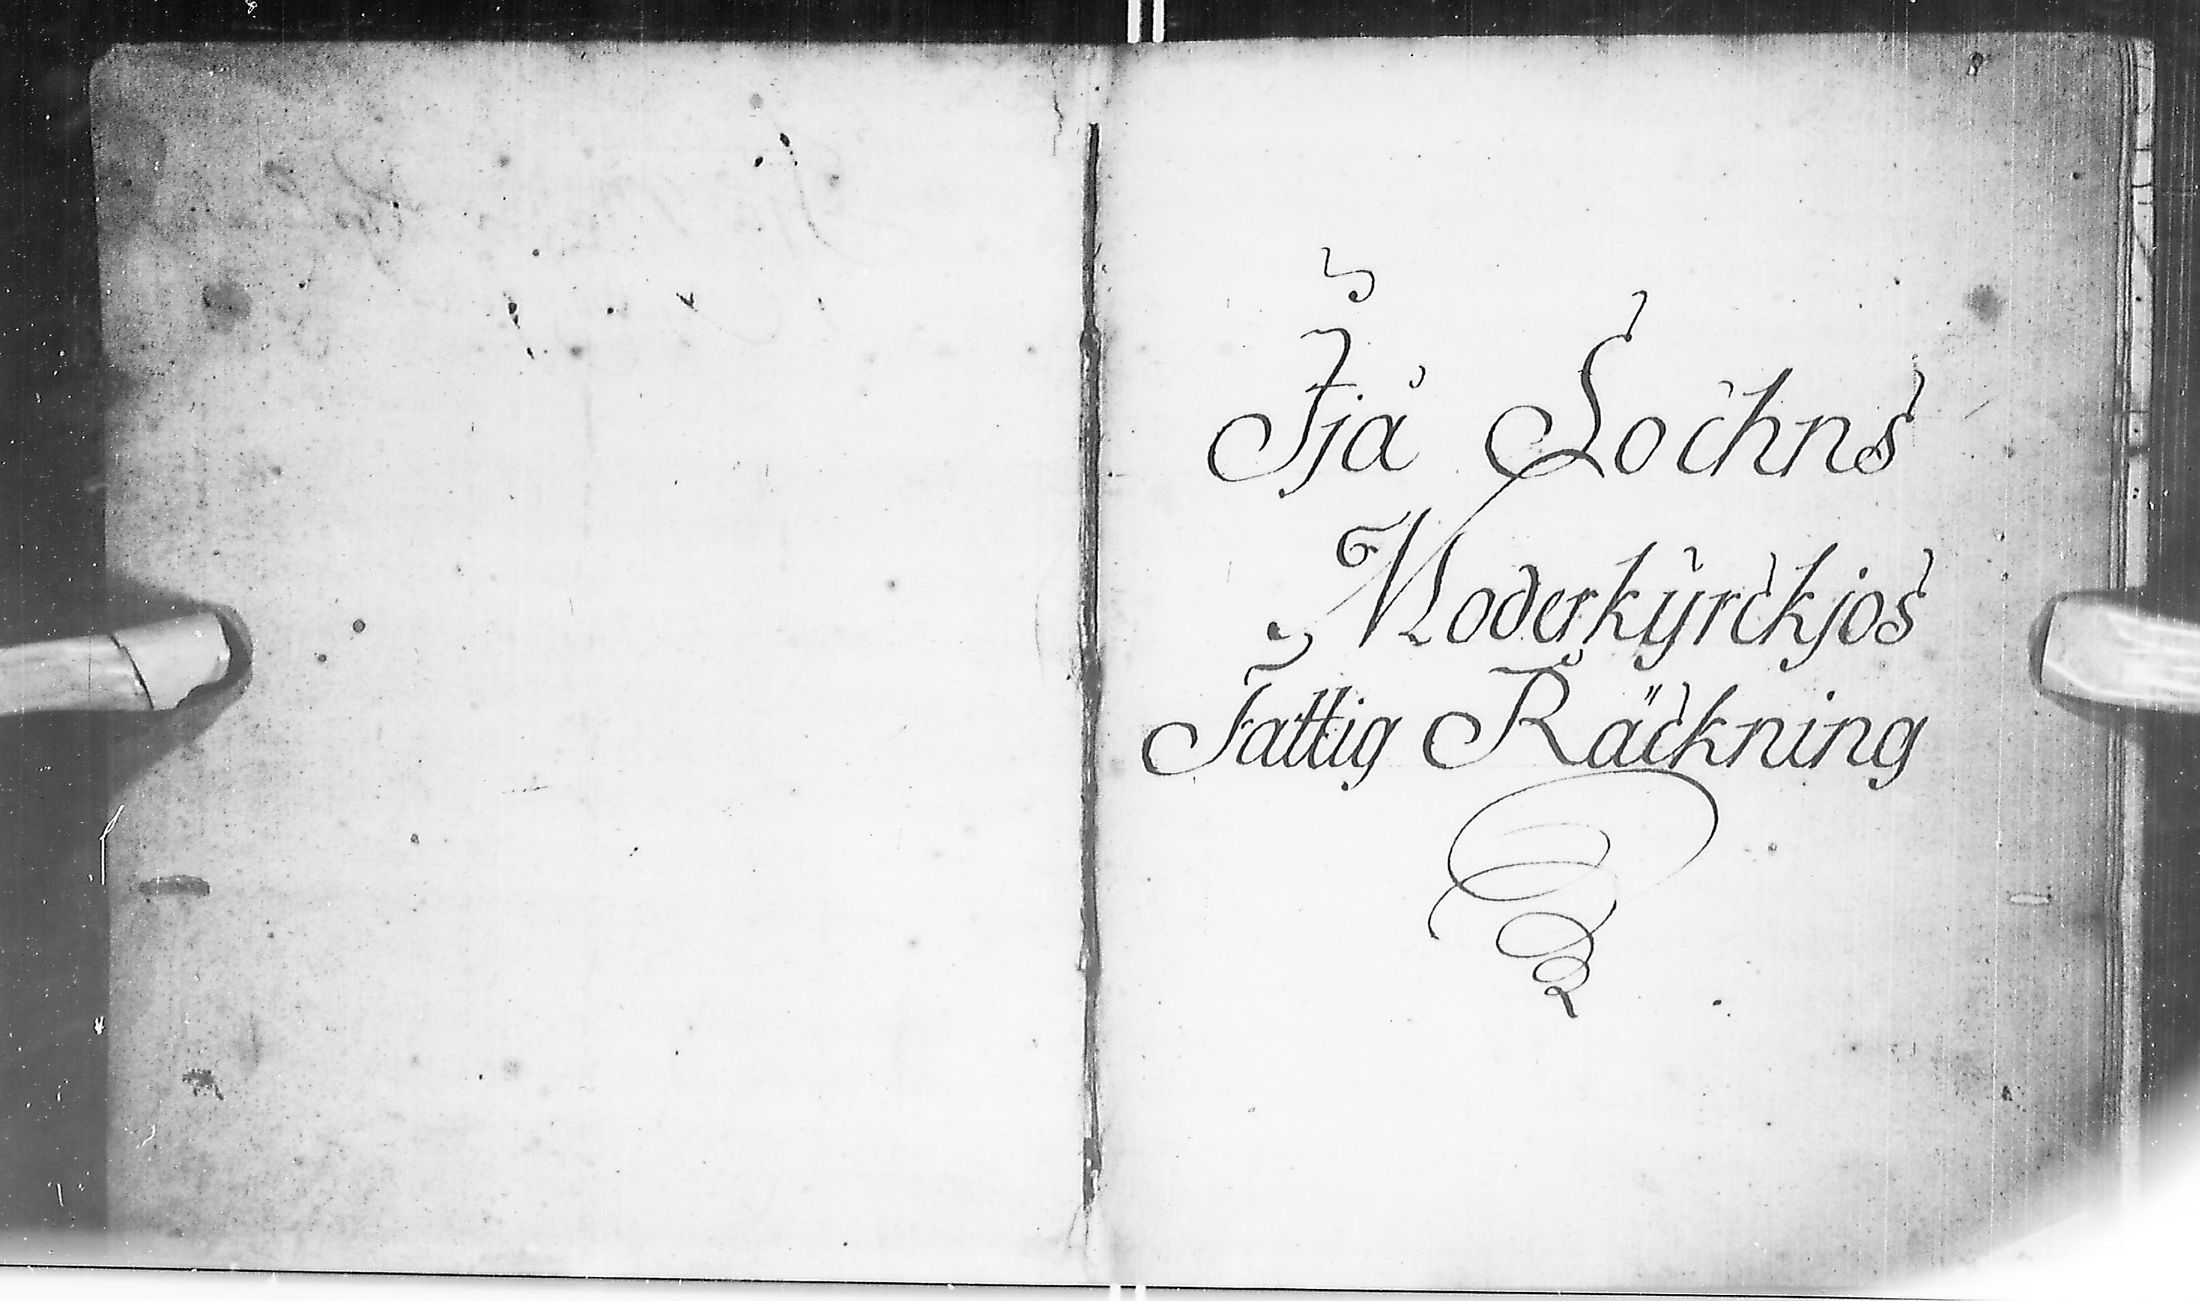 Ijå Sochns
Moderkÿrckjos
Fattig Räckning